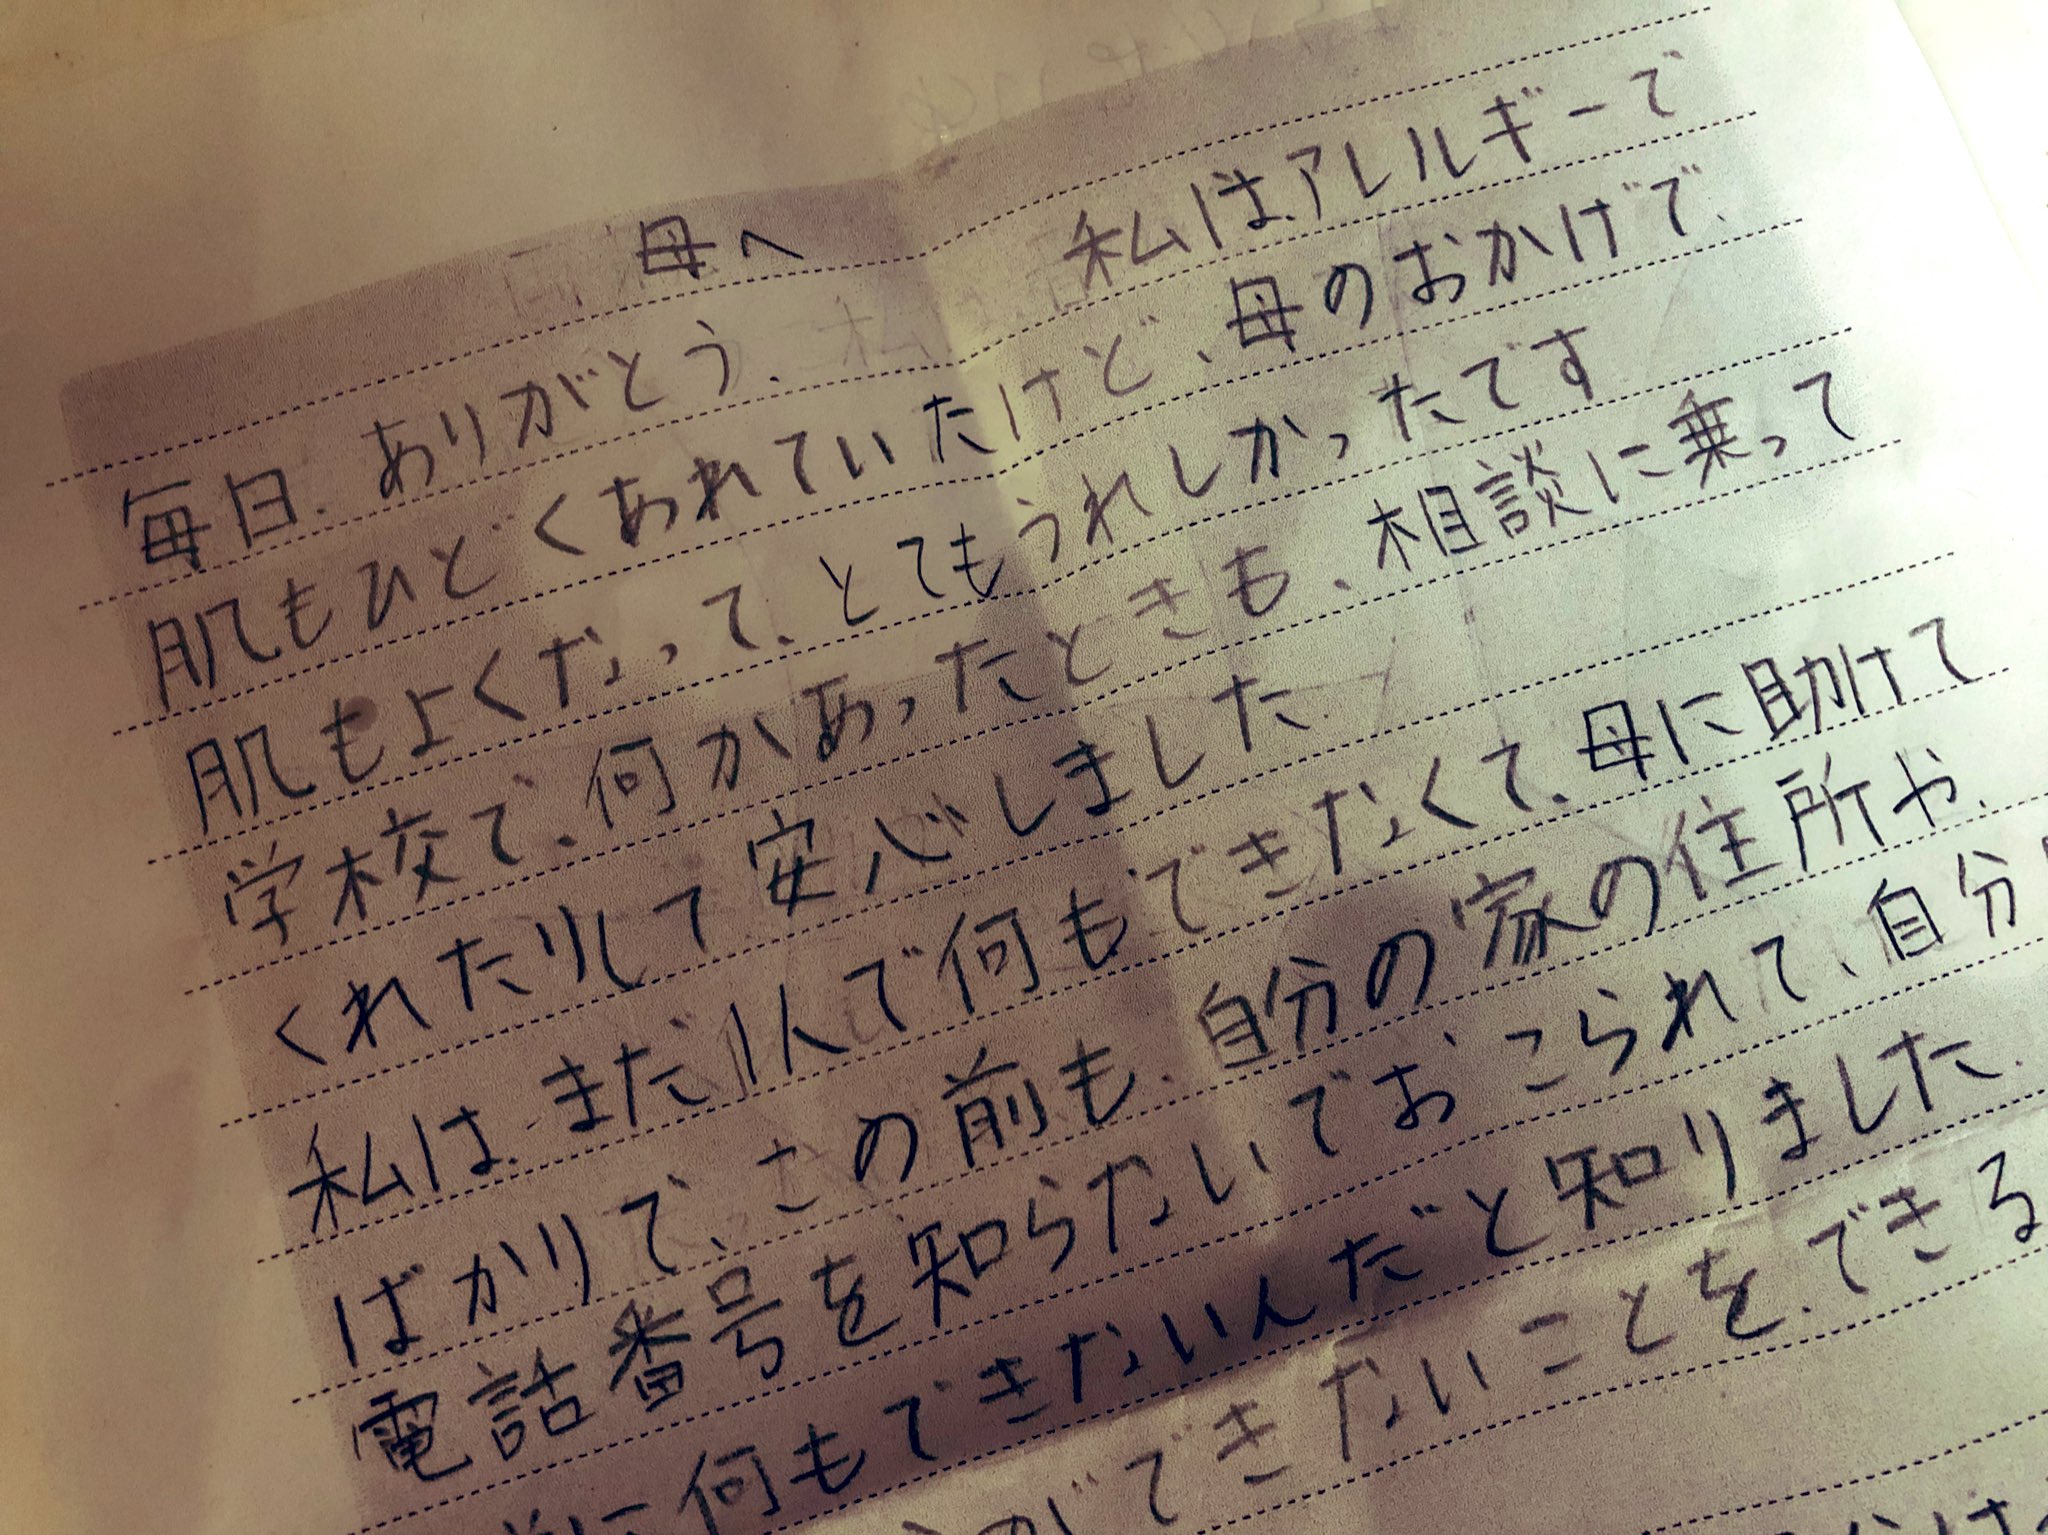 母へ
毎日、ありがとう、私はアレルギーで
肌もひどくあれていたけど、母のおかげで、
肌もよくなって、とてもうれしかったです
学校で、何かあったときも、相談に乗って
くれたりして安心しました。
私は、まだ1人で何もできなくて、母に助けて
ばかりで、この前も、自分の家の住所や、
電話番号を知らないでおこられて、自分
に何もできないんだと知りました。
ができないことを、できる